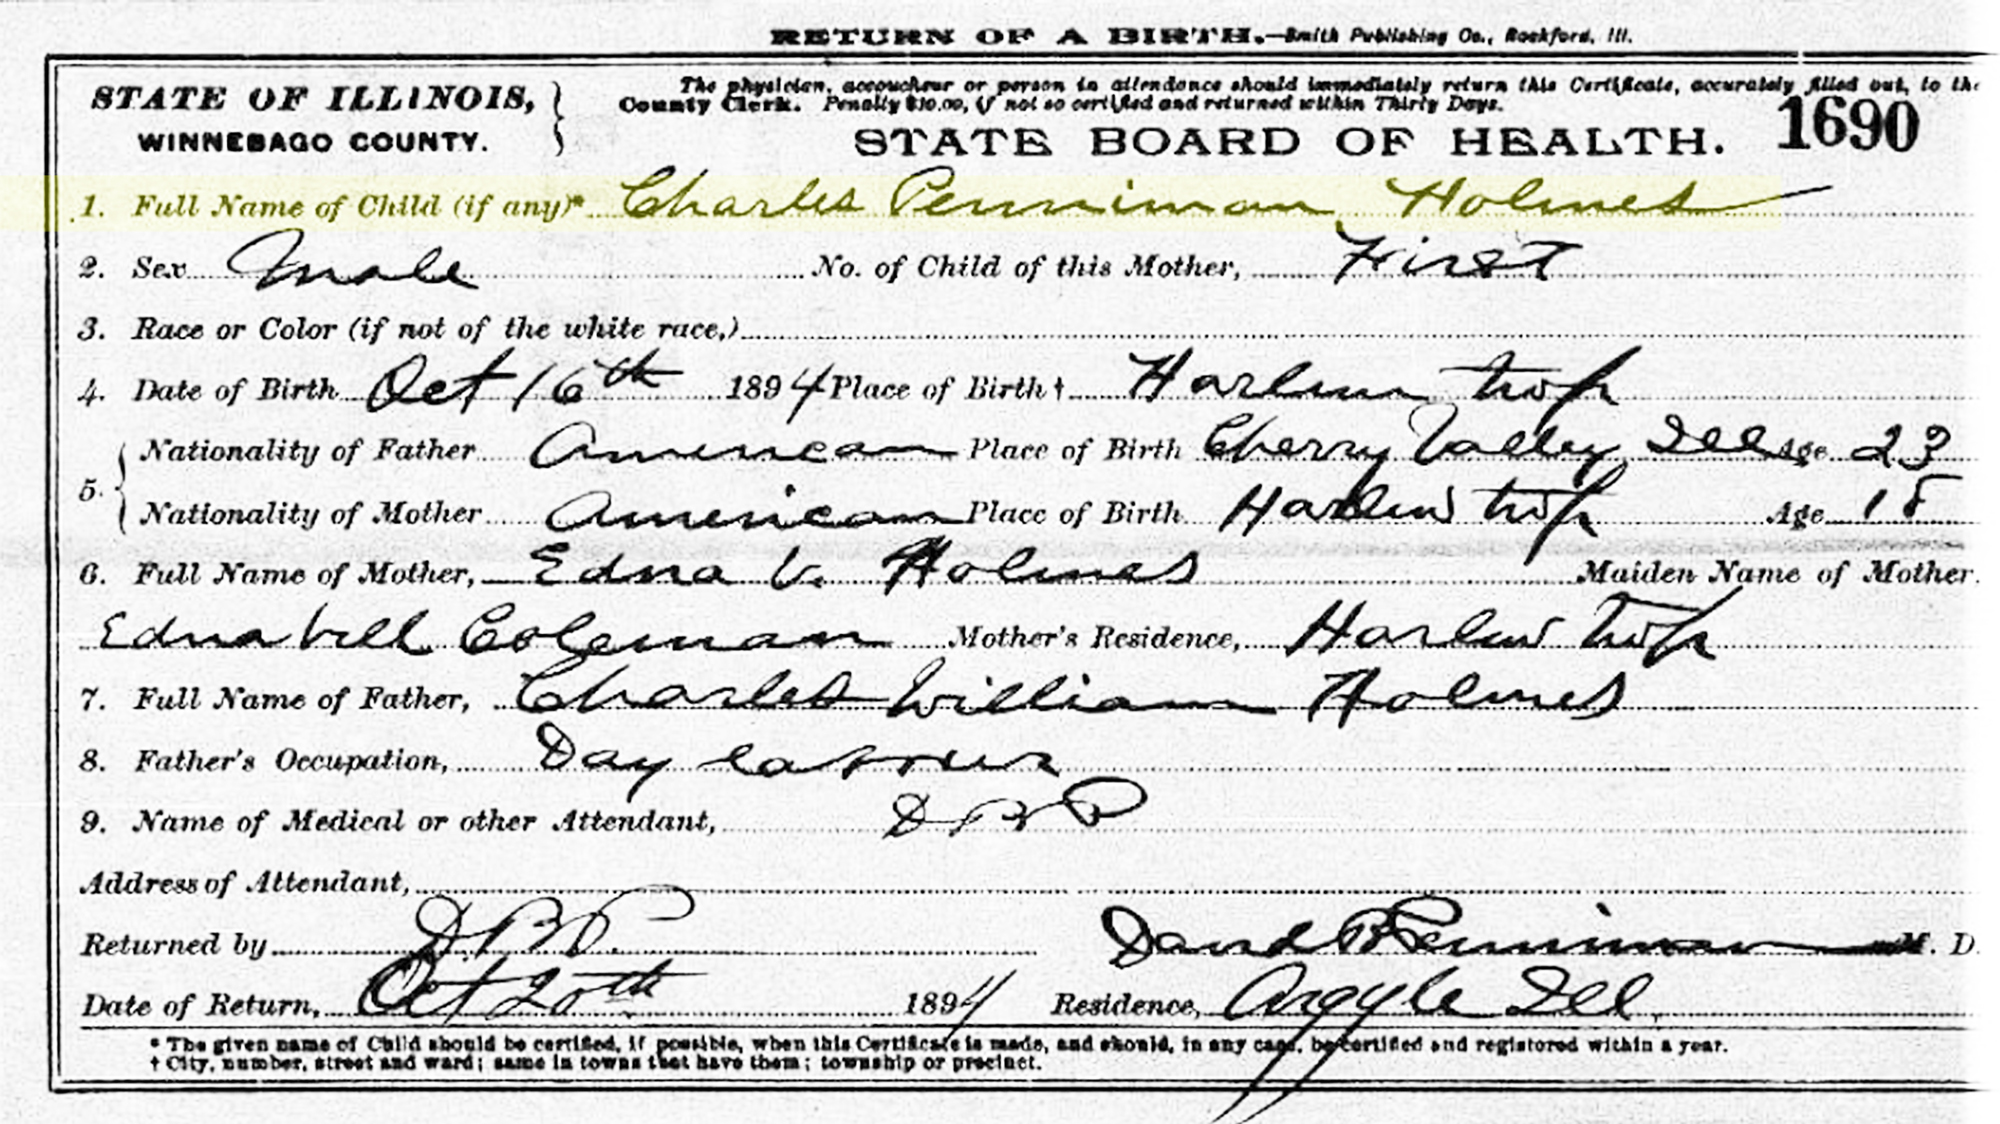 RETURN OF A BIRTH.—Smith Publishing Co., Rockford, Ill.
STATE OF ILLINOIS,
WINNEBAGO COUNTY.
The physician, accoucheur or person in attendance should immediately return this Certificate, accurately filled out, to the
County Clerk. Penalty $10.00, if not so certified and returned within Thirty Days.
STATE BOARD OF HEALTH. 1690
1. Full Name of Child (if any)* Charles Penniman Holmes
2. Sex Male No. of Child of this Mother, First
3. Race or Color (if not of the white race,)
4. Date of Birth Oct 16th 1894 Place of Birth † Harlem twp
5. Nationality of Father American Place of Birth Cherry Valley Ill Age 23
Nationality of Mother American Place of Birth Harlem twp Age 18
6. Full Name of Mother, Edna V. Holmes Maiden Name of Mother
Edna Coleman Mother's Residence, Harlem twp
7. Full Name of Father, Charles William Holmes
8. Father's Occupation, Day labour
9. Name of Medical or other Attendant, DBP
Address of Attendant,
Returned by DBP. David B Penniman M. D.
Date of Return, Oct 20th 1894 Residence, Argyle Ill.
* The given name of Child should be certified, if possible, when this Certificate is made, and should, in any case, be certified and registered within a year.
† City, number, street and ward; same in towns that have them; township or precinct.